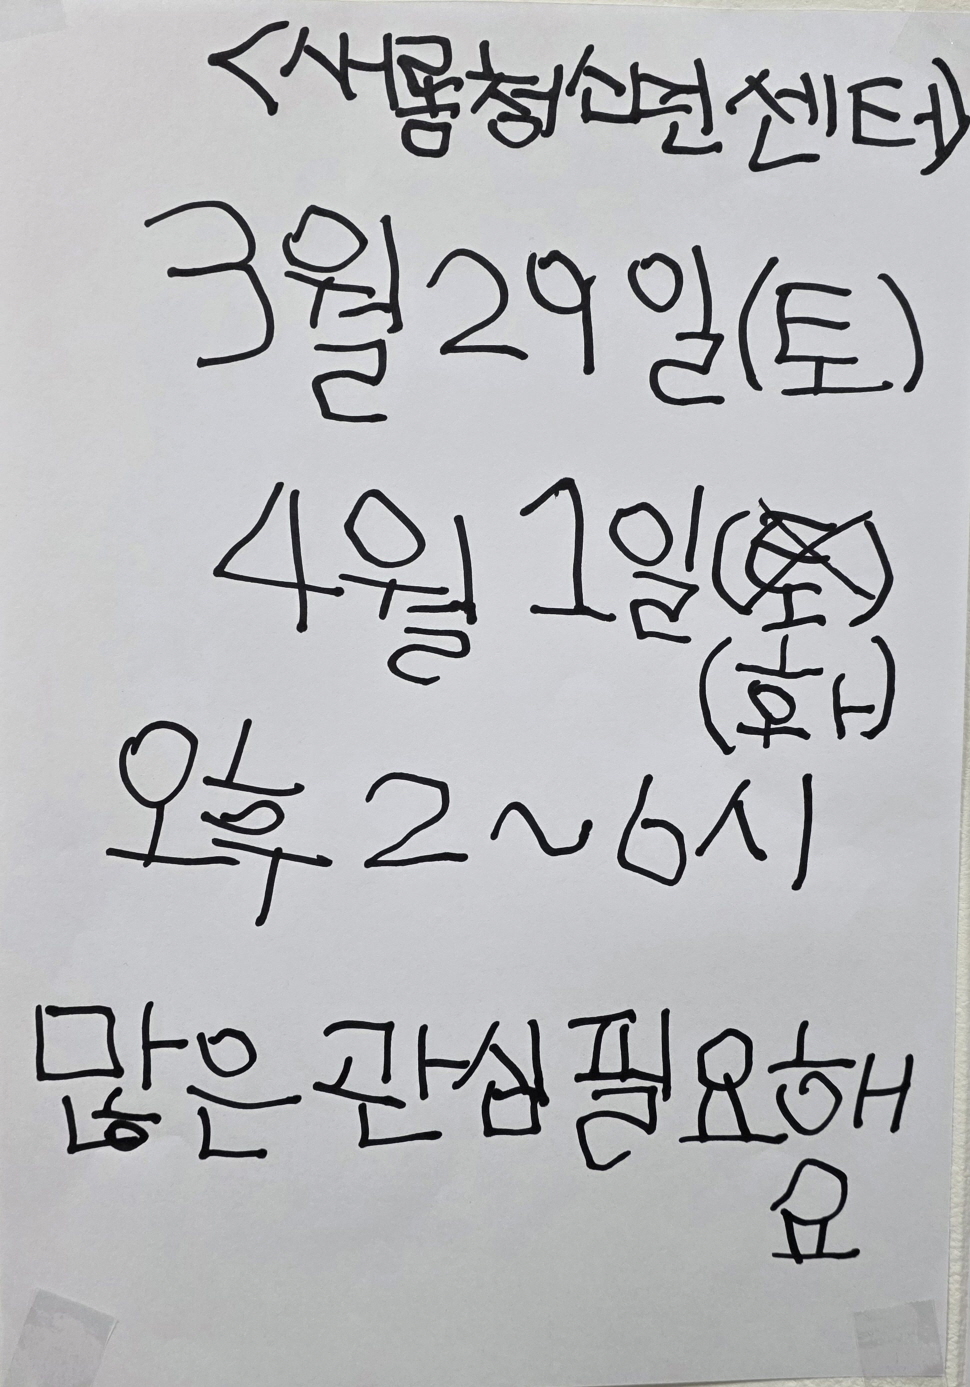 <새롬청소년센터>
3월 29일(토)
4월 1일(토)
(화)
오후 2~6시
많은 관심필요해
요